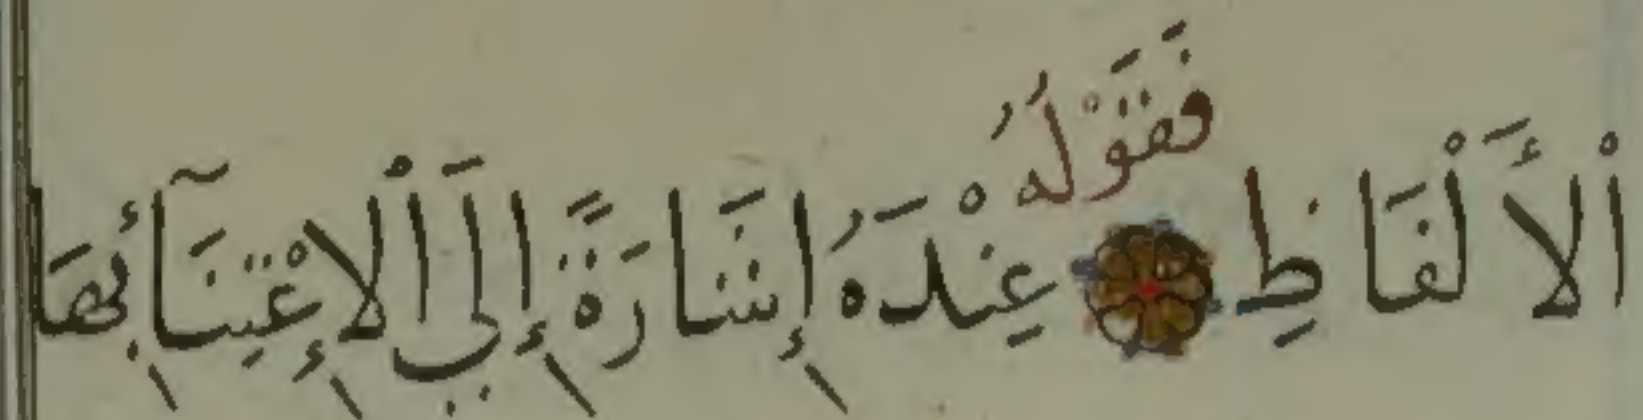 اْلأَلْفَاظِ فَقَوْلُهُ عِنْدَهُ إِشَارَةً إِلَي اْلإِعْتِنَآئِ بِهَا